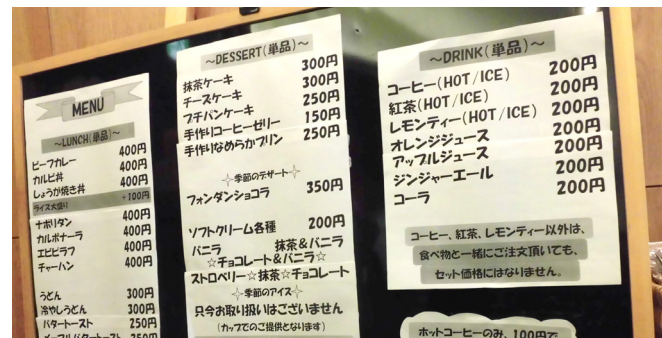 MENU
～LUNCH(単品)～
ビーフカレー 400円
カルビ丼 400円
しょうが焼き丼 400円
ライス大盛り +100円
ナポリタン 400円
カルボナーラ 400円
エビピラフ 400円
チャーハン 400円
うどん 300円
冷やしうどん 300円
バタートースト 250円
メープルバタートースト 250円
～DESSERT(単品)～
抹茶ケーキ 300円
チーズケーキ 300円
プチパンケーキ 250円
手作りコーヒーゼリー 150円
手作りなめらかプリン 250円
季節のデザート
フォンダンショコラ 350円
ソフトクリーム各種 200円
バニラ 抹茶&バニラ
☆チョコレート&バニラ☆
ストロベリー☆抹茶☆チョコレート
季節のアイス
只今お取り扱いはございません
(カップでのご提供となります)
～DRINK(単品)～
コーヒー(HOT/ICE) 200円
紅茶(HOT/ICE) 200円
レモンティー(HOT/ICE) 200円
オレンジジュース 200円
アップルジュース 200円
ジンジャーエール 200円
コーラ 200円
コーヒー、紅茶、レモンティー以外は、
食べ物と一緒にご注文頂いても、
セット価格にはなりません。
ホットコーヒーのみ、100円で